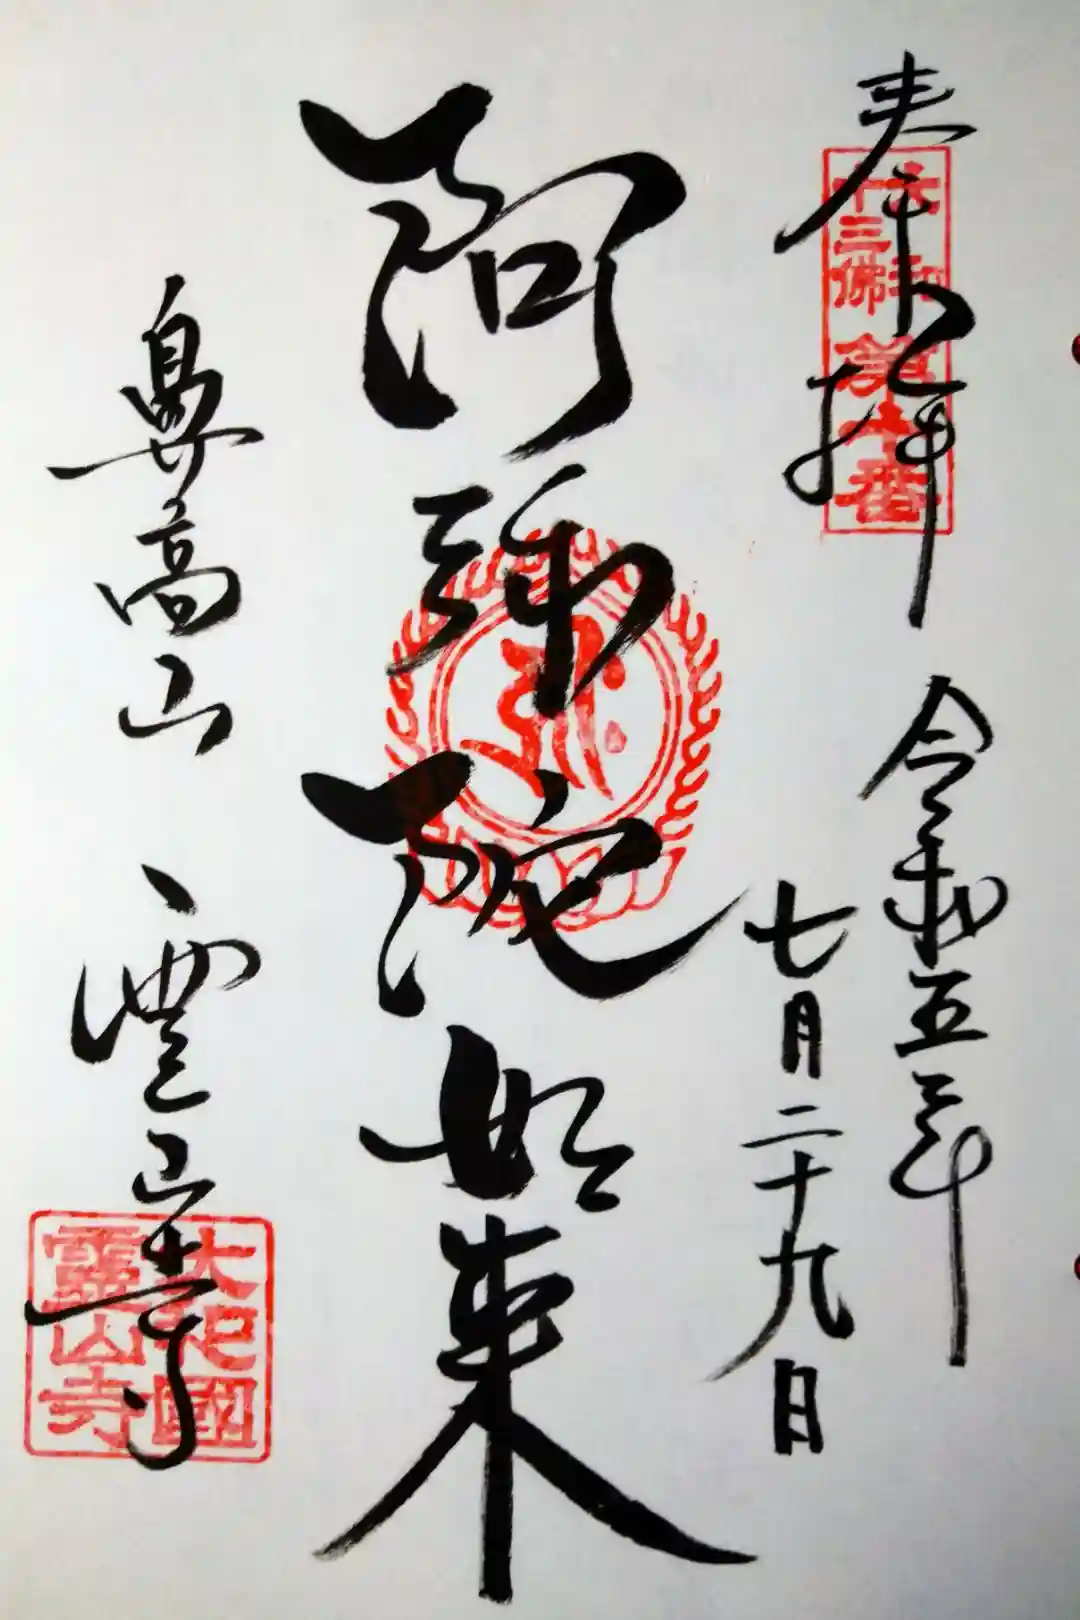 奉拝
大和
十三佛 第十番
令和五年
七月二十九日
阿弥陀如来
鼻高山
霊山寺
大和國
靈山寺